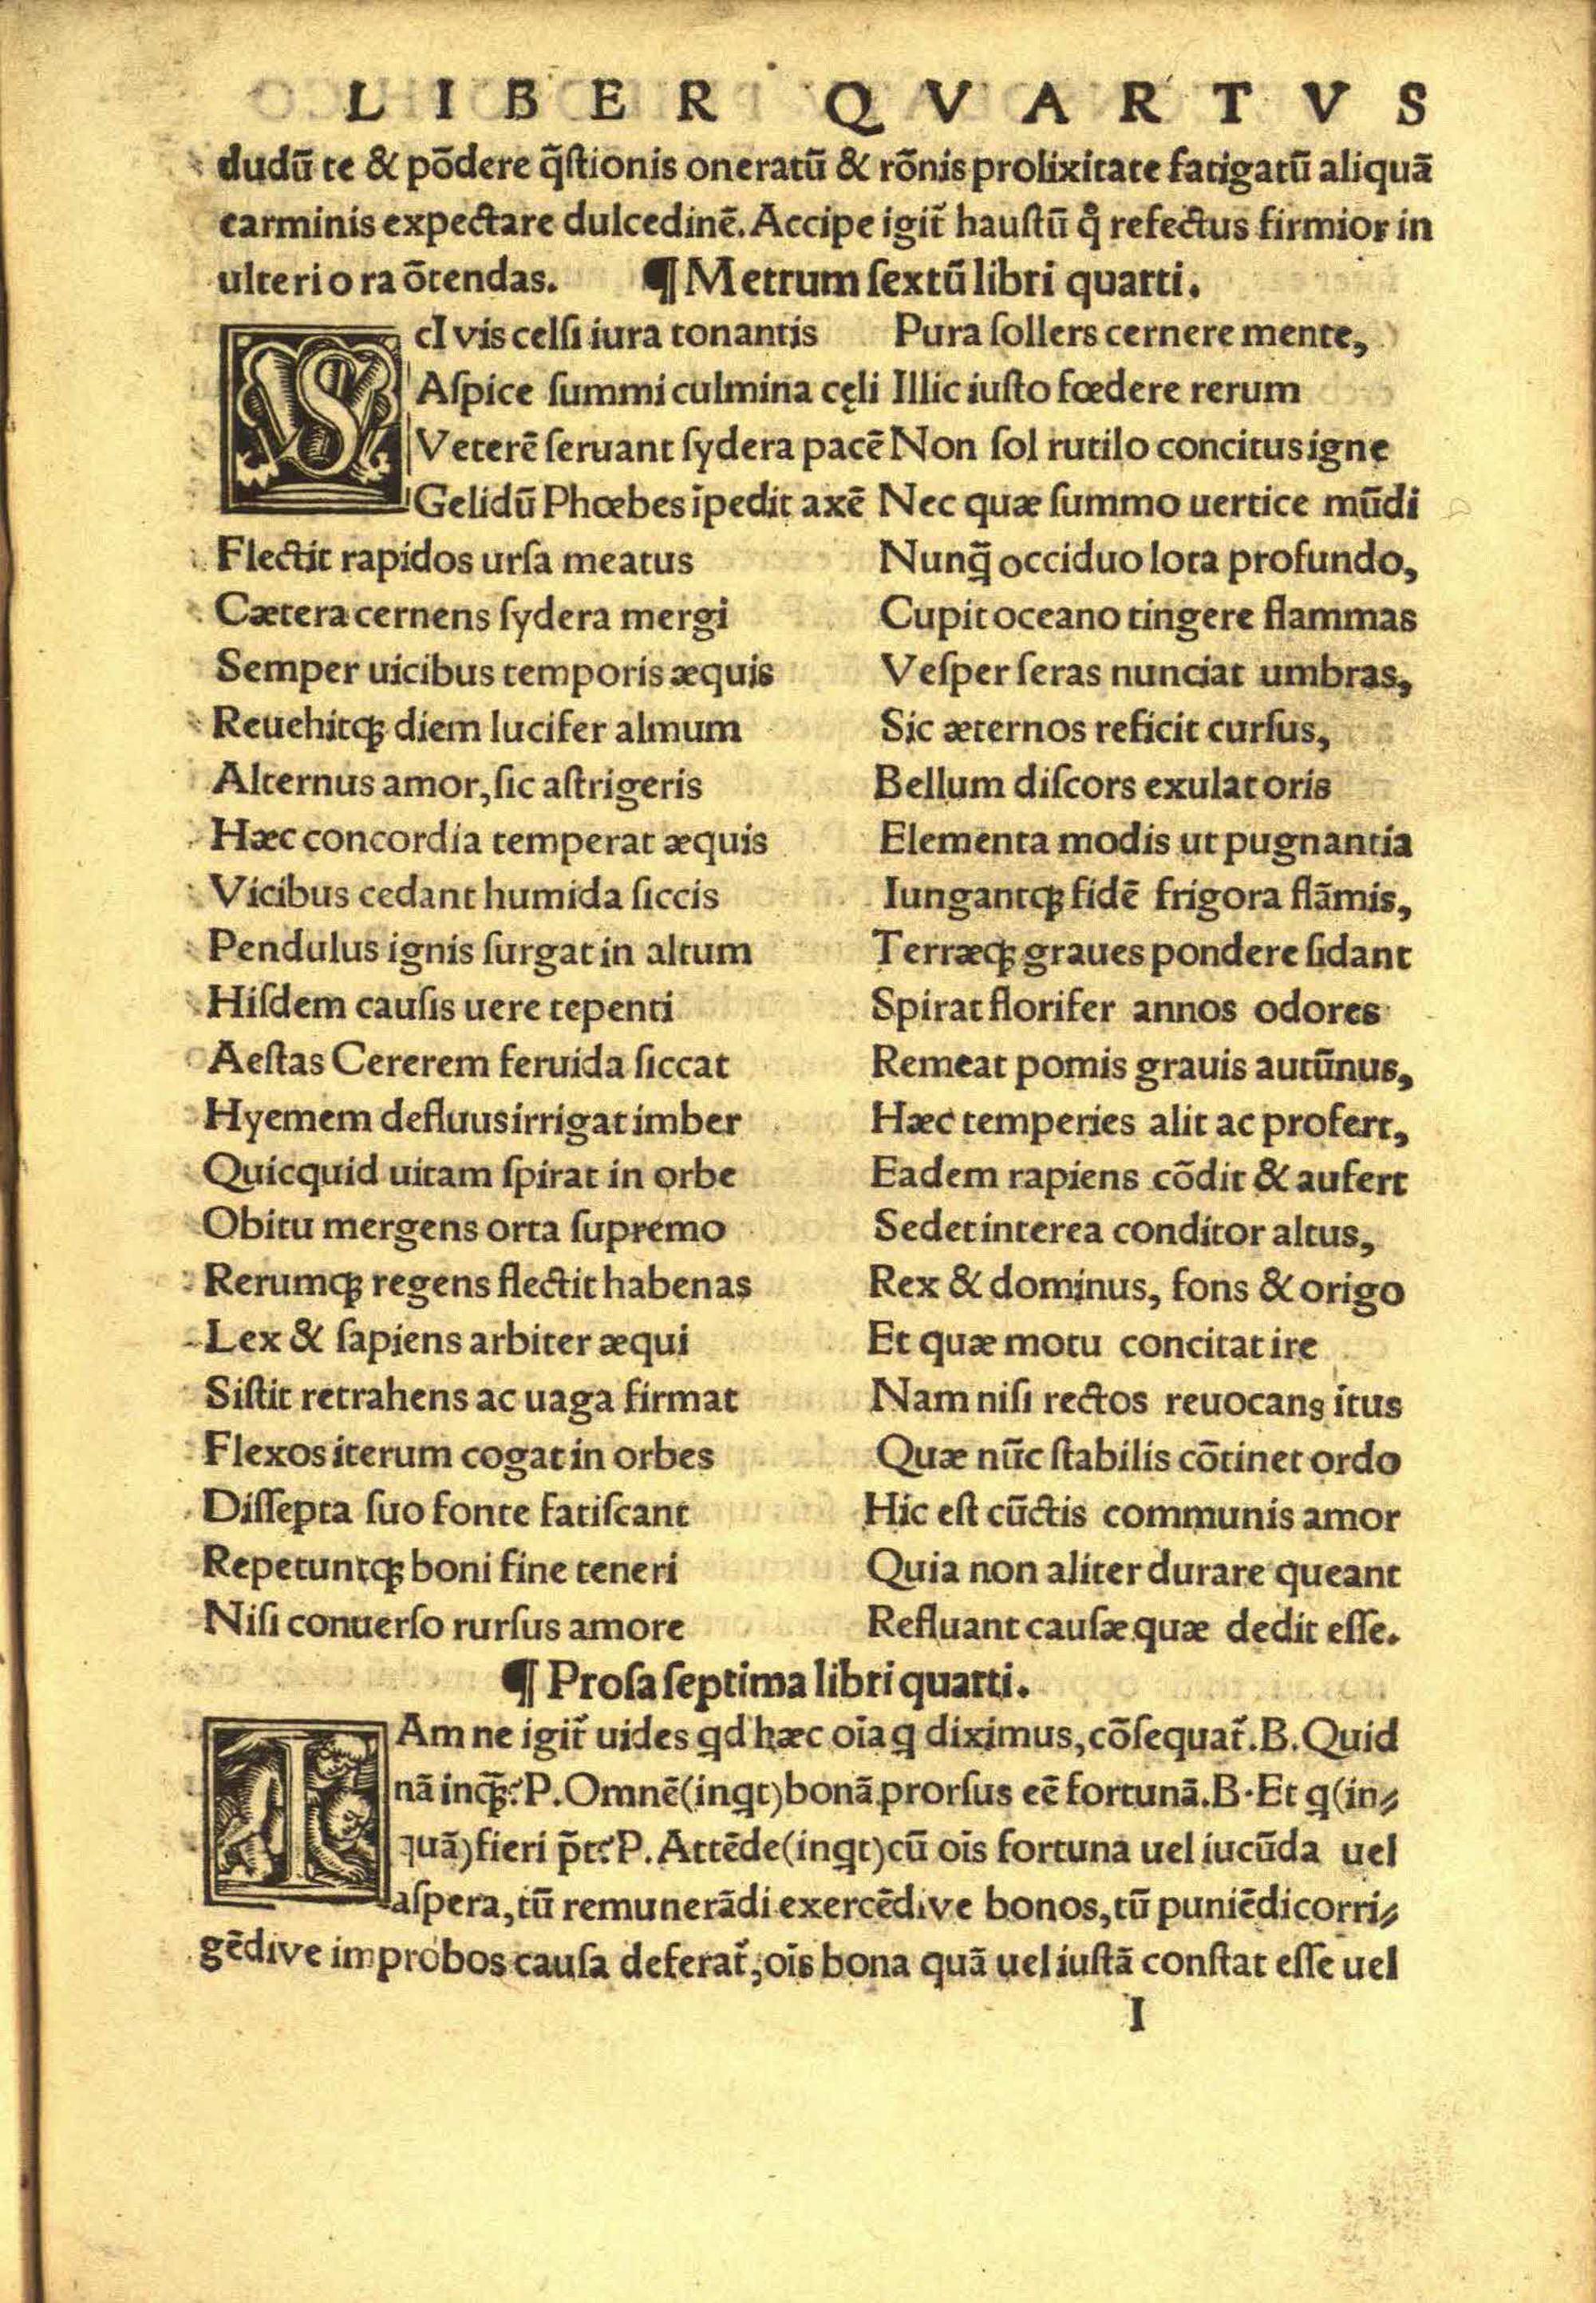 LIBER QVARTVS
dudū te & põdere q̃ſtionis oneratū & rõnis prolixitate fatigatū aliquã
carminis expectare dulcedinẽ. Accipe igit᷑ hauſtū q̊ refectus firmior in
ulteriora õtendas. ¶ Metrum ſextū libri quarti.
ScI vis celſi iura tonantis Pura ſollers cernere mente,
Aſpice ſummi culmina cęli Illic iuſto fœdere rerum
Veterẽ ſeruant ſydera pacẽ Non ſol rutilo concitus igne
Gelidū Phœbes īpedit axẽ Nec quæ ſummo uertice mūdi
Flectit rapidos urſa meatus Nunq̃ occiduo lota profundo,
Cætera cernens ſydera mergi Cupit oceano tingere flammas
Semper uicibus temporis æquis Veſper ſeras nunciat umbras,
Reuehitq; diem lucifer almum Sic æternos reficit curſus,
Alternus amor, ſic aſtrigeris Bellum diſcors exulat oris
Hæc concordia temperat æquis Elementa modis ut pugnantia
Vicibus cedant humida ſiccis Iungantq; fidẽ frigora flãmis,
Pendulus ignis ſurgat in altum Terræq; graues pondere ſidant
Hiſdem cauſis uere tepenti Spirat florifer annos odores
Aeſtas Cererem feruida ſiccat Remeat pomis grauis autūnus,
Hyemem defluus irrigat imber Hæc temperies alit ac profert,
Quicquid uitam ſpirat in orbe Eadem rapiens cõdit & aufert
Obitu mergens orta ſupremo Sedet interea conditor altus,
Rerumq; regens flectit habenas Rex & dominus, fons & origo
Lex & ſapiens arbiter æqui Et quæ motu concitat ire
Siſtit retrahens ac uaga firmat Nam niſi rectos reuocans itus
Flexos iterum cogat in orbes Quæ nūc ſtabilis cõtinet ordo
Diſſepta ſuo fonte fatiſcant Hic eſt cūctis communis amor
Repetuntq; boni fine teneri Quia non aliter durare queant
Niſi conuerſo rurſus amore Refluant cauſæ quæ dedit eſſe.
¶ Proſa ſeptima libri quarti.
IAm ne igit᷑ uides qd hæc oīa q diximus, cõſequat᷑. B. Quid
nã inq̃;? P. Omnẽ (inqt) bonã prorſus eẽ fortunã. B. Et q (in⸗
quã) fieri p̃t? P. Attẽde (inqt) cū oīs fortuna uel iucūda uel
aſpera, tū remunerãdi exercẽdive bonos, tū puniẽdi corri⸗
gẽdive improbos cauſa deferat᷑, oīs bona quã uel iuſtã conſtat eſſe uel
I